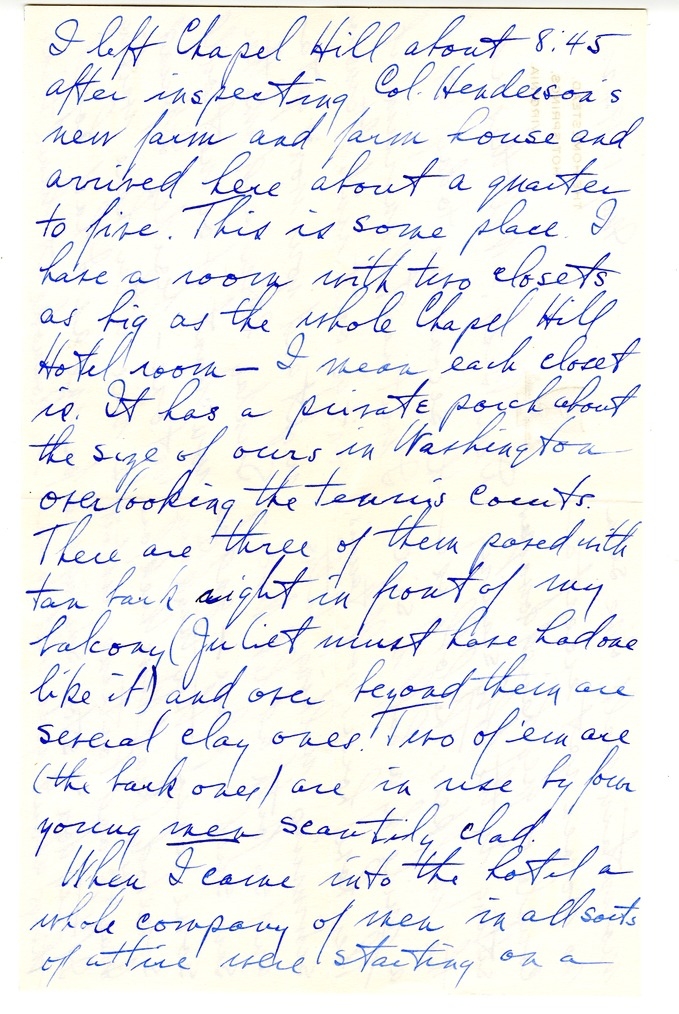 I left Chapel Hill about 8:45
after inspecting Col. Henderson's
new farm and farm house and
arrived here about a quarter
to five. This is some place. I
have a room with two closets
as big as the whole Chapel Hill
Hotel room – I mean each closet
is. It has a private porch about
the size of ours in Washington
overlooking the tennis courts.
There are three of them paved with
tan bark right in front of my
balcony (Juliet must have had one
like it) and over beyond them are
several clay ones. Two of 'em are
(the bark ones) are in use by four
young men scantily clad.
When I came into the hotel a
whole company of men in all sorts
of attire were starting on a